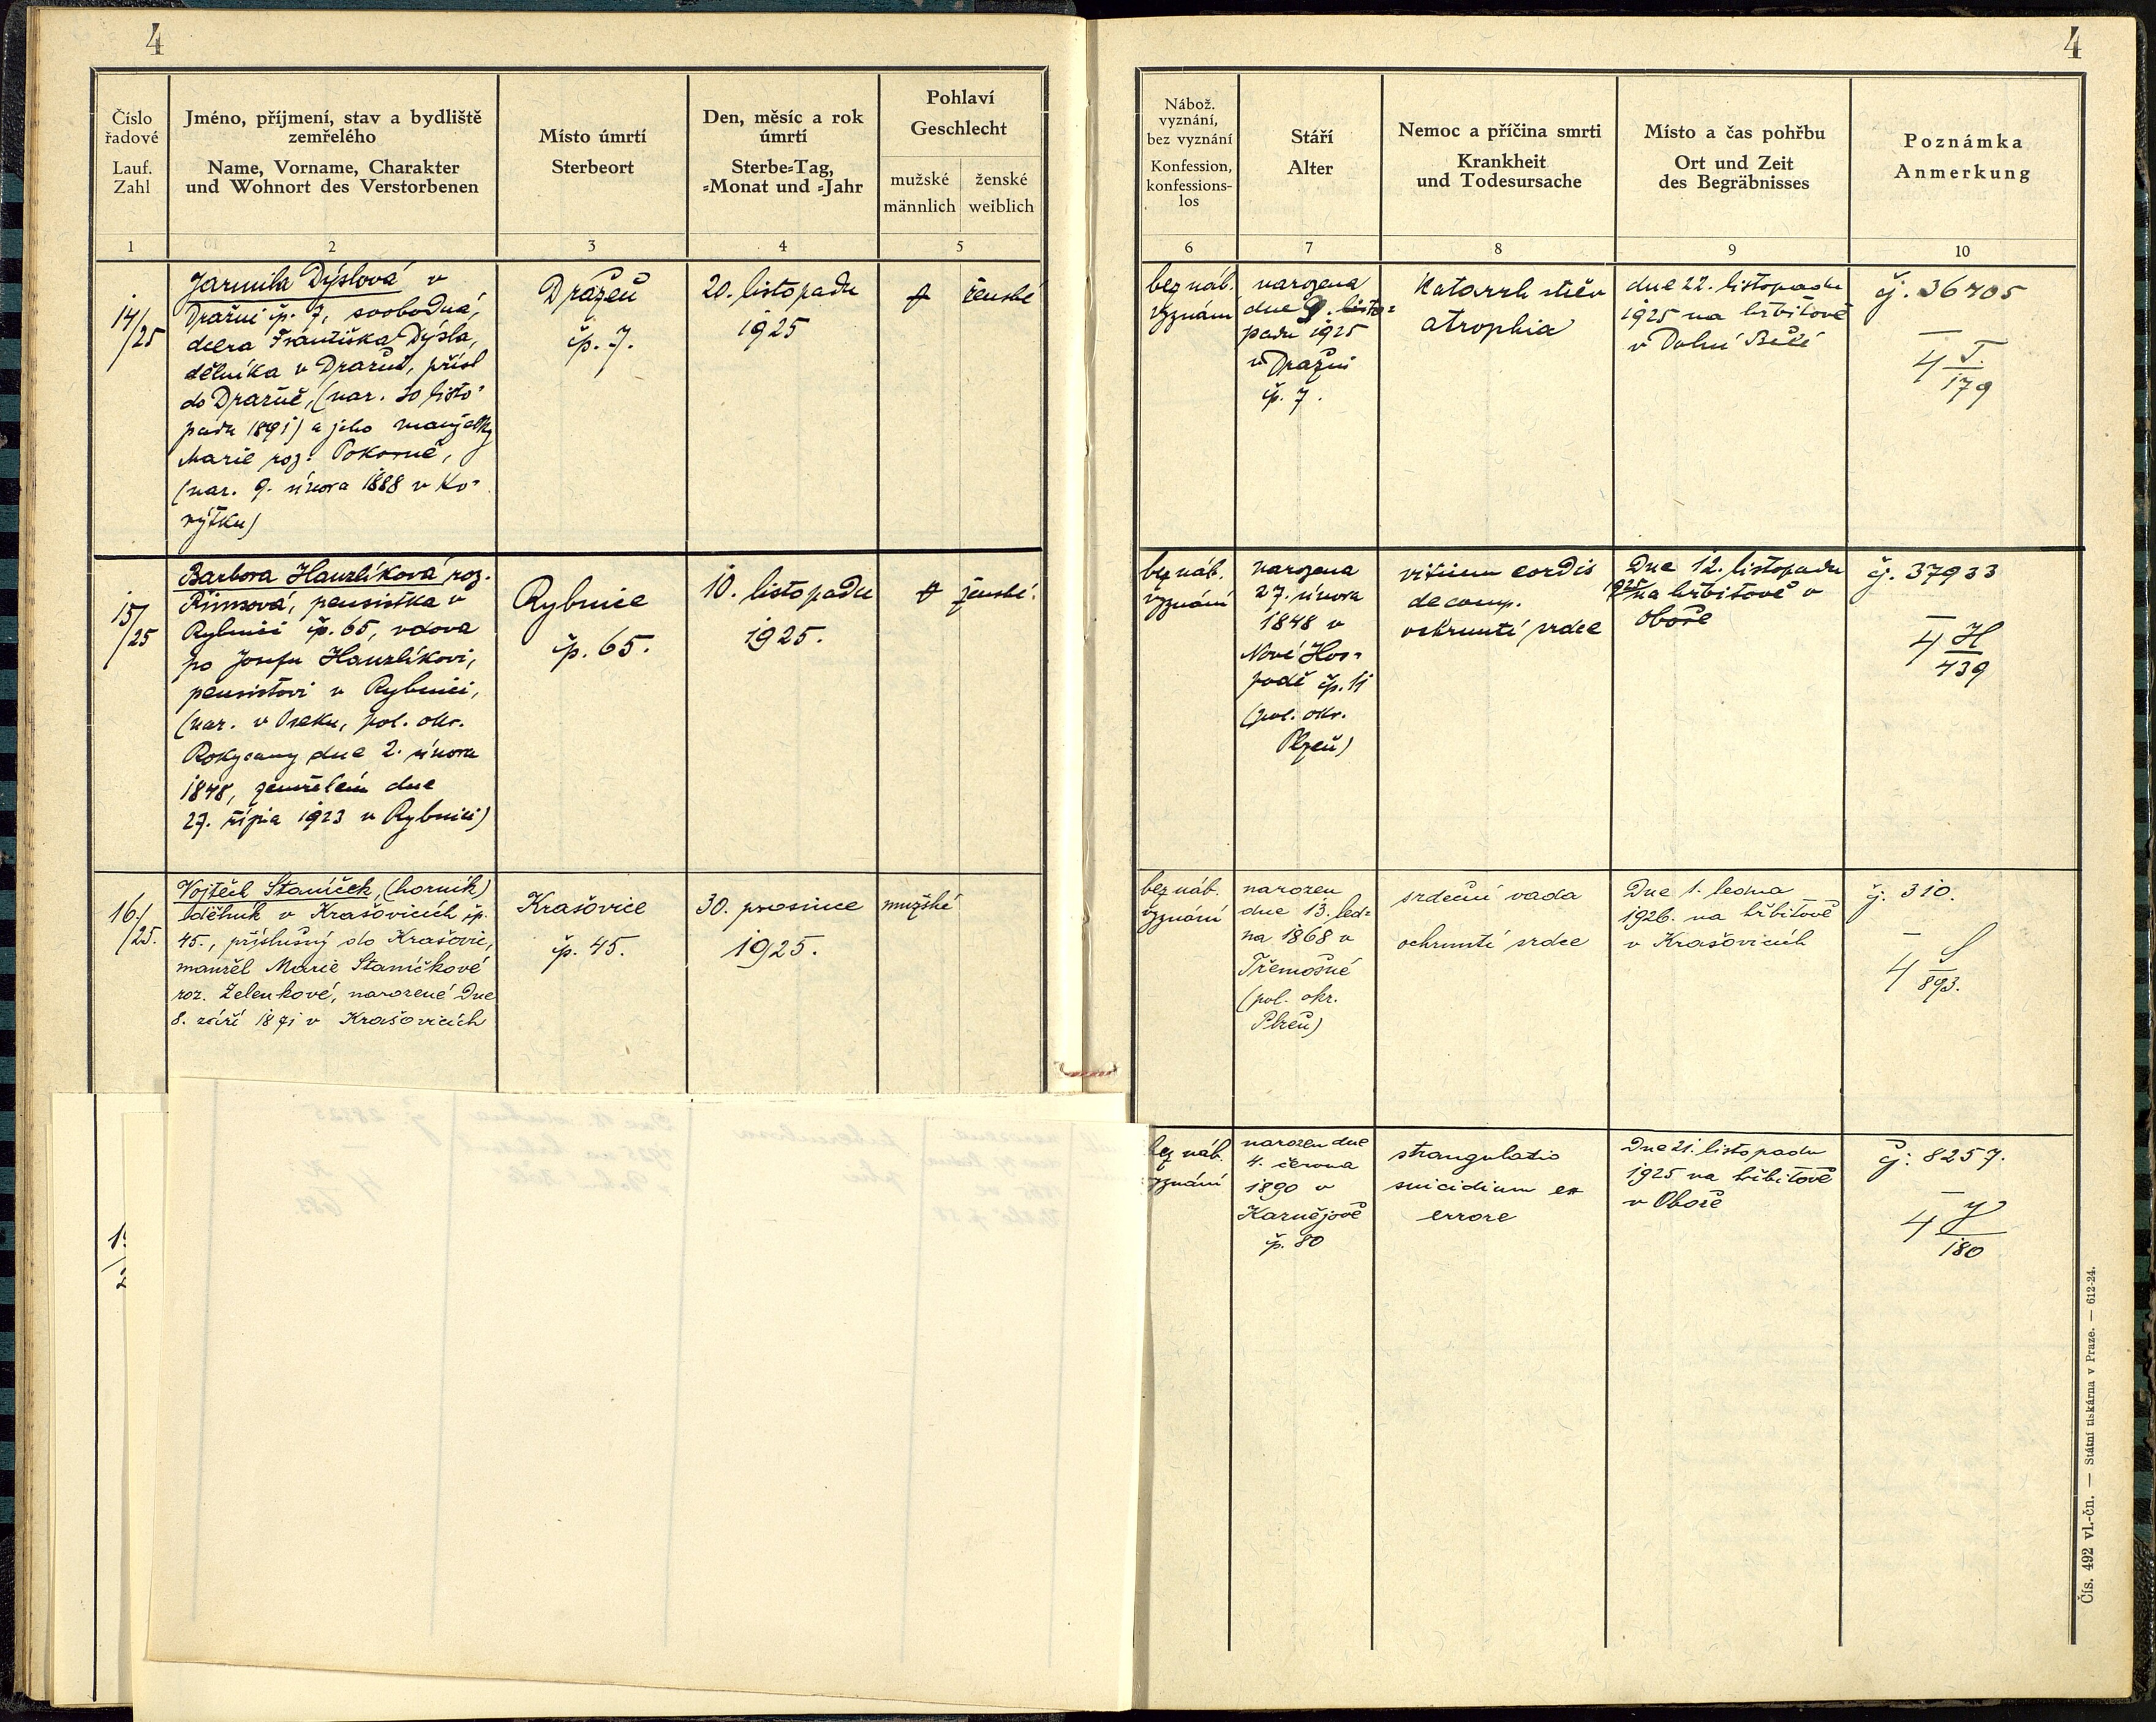 4
Číslo
řadové
Lauf.
Zahl
1
Jméno, příjmení, stav a bydliště
zemřelého
Name, Vorname, Charakter
und Wohnort des Verstorbenen
2
Místo úmrtí
Sterbeort
3
Den, měsíc a rok
úmrtí
Sterbe=Tag,
=Monat und =Jahr
4
Pohlaví
Geschlecht
mužské
männlich
ženské
weiblich
5
14/25
Jarmila Dýslová v
Dražni čp. 7, svobodná,
dcera Františka Dýsla,
dělníka v Dražni, přísl
do Dražně, (nar. 30 listo=
padu 1891) a jeho manželky
Marie roz. Pokorné,
(nar. 9. února 1888 v Ko=
rýtku)
Dražeň
čp. 7.
20. listopadu
1925
ženské
15/25
Barbora Hauzlíková roz.
pensistka v
Rybnici čp. 65, vdova
po Josefu Hauzlíkovi,
pensistovi v Rybnici,
(nar. v Oseku, pol. okr.
Rokycany dne 2. února
1848, zemřelém dne
27. října 1923 v Rybnici)
Rybnice
čp. 65.
10. listopadu
1925.
ženské.
16./25.
Vojtěch Staníček, (horník)
dělník v Krašovicích čp.
45., příslušný do Krašovic,
manžel Marie Staníčkové
roz. Zelenkové, narozené dne
8. září 1871 v Krašovicích
Krašovice
čp. 45.
30. prosince
1925.
mužské
4
Nábož.
vyznání,
bez vyznání
Konfession,
konfessions-
los
6
Stáří
Alter
7
Nemoc a příčina smrti
Krankheit
und Todesursache
8
Místo a čas pohřbu
Ort und Zeit
des Begräbnisses
9
Poznámka
Anmerkung
10
bez náb.
vyznání
narozena
dne 9. listo=
padu 1925
v Dražni
čp. 7.
Katarrh střev
atrophia
dne 22. listopadu
1925 na hřbitově
v Dolní Bělé
čj. 36405
4 T./179
bez náb.
vyznání
narozena
27. února
1848 v
Nové Hos=
podě čp. 11
(pol. okr.
Plzeň)
vitium cordis
decomp.
ochrnutí srdce
Dne 12. listopadu
1925 na hřbitově v
Oboře
čj. 37933
4 H/439
bez náb.
vyznání
narozen
dne 13. led=
na 1868 v
Třemošné
(pol. okr.
Plzeň)
srdeční vada
ochrnutí srdce
Dne 1. ledna
1926. na hřbitově
v Krašovicích
čj. 310.
4 S/893.
bez náb.
vyznání
narozen dne
4. června
1890 v
Kaznějově
čp. 80
strangulatio
suicidium ex
errore
Dne 21. listopadu
1925 na hřbitově
v Oboře
čj. 8257.
4 J/180
Čís. 492 vl.-čn. — Státní tiskárna v Praze. — 612-24.